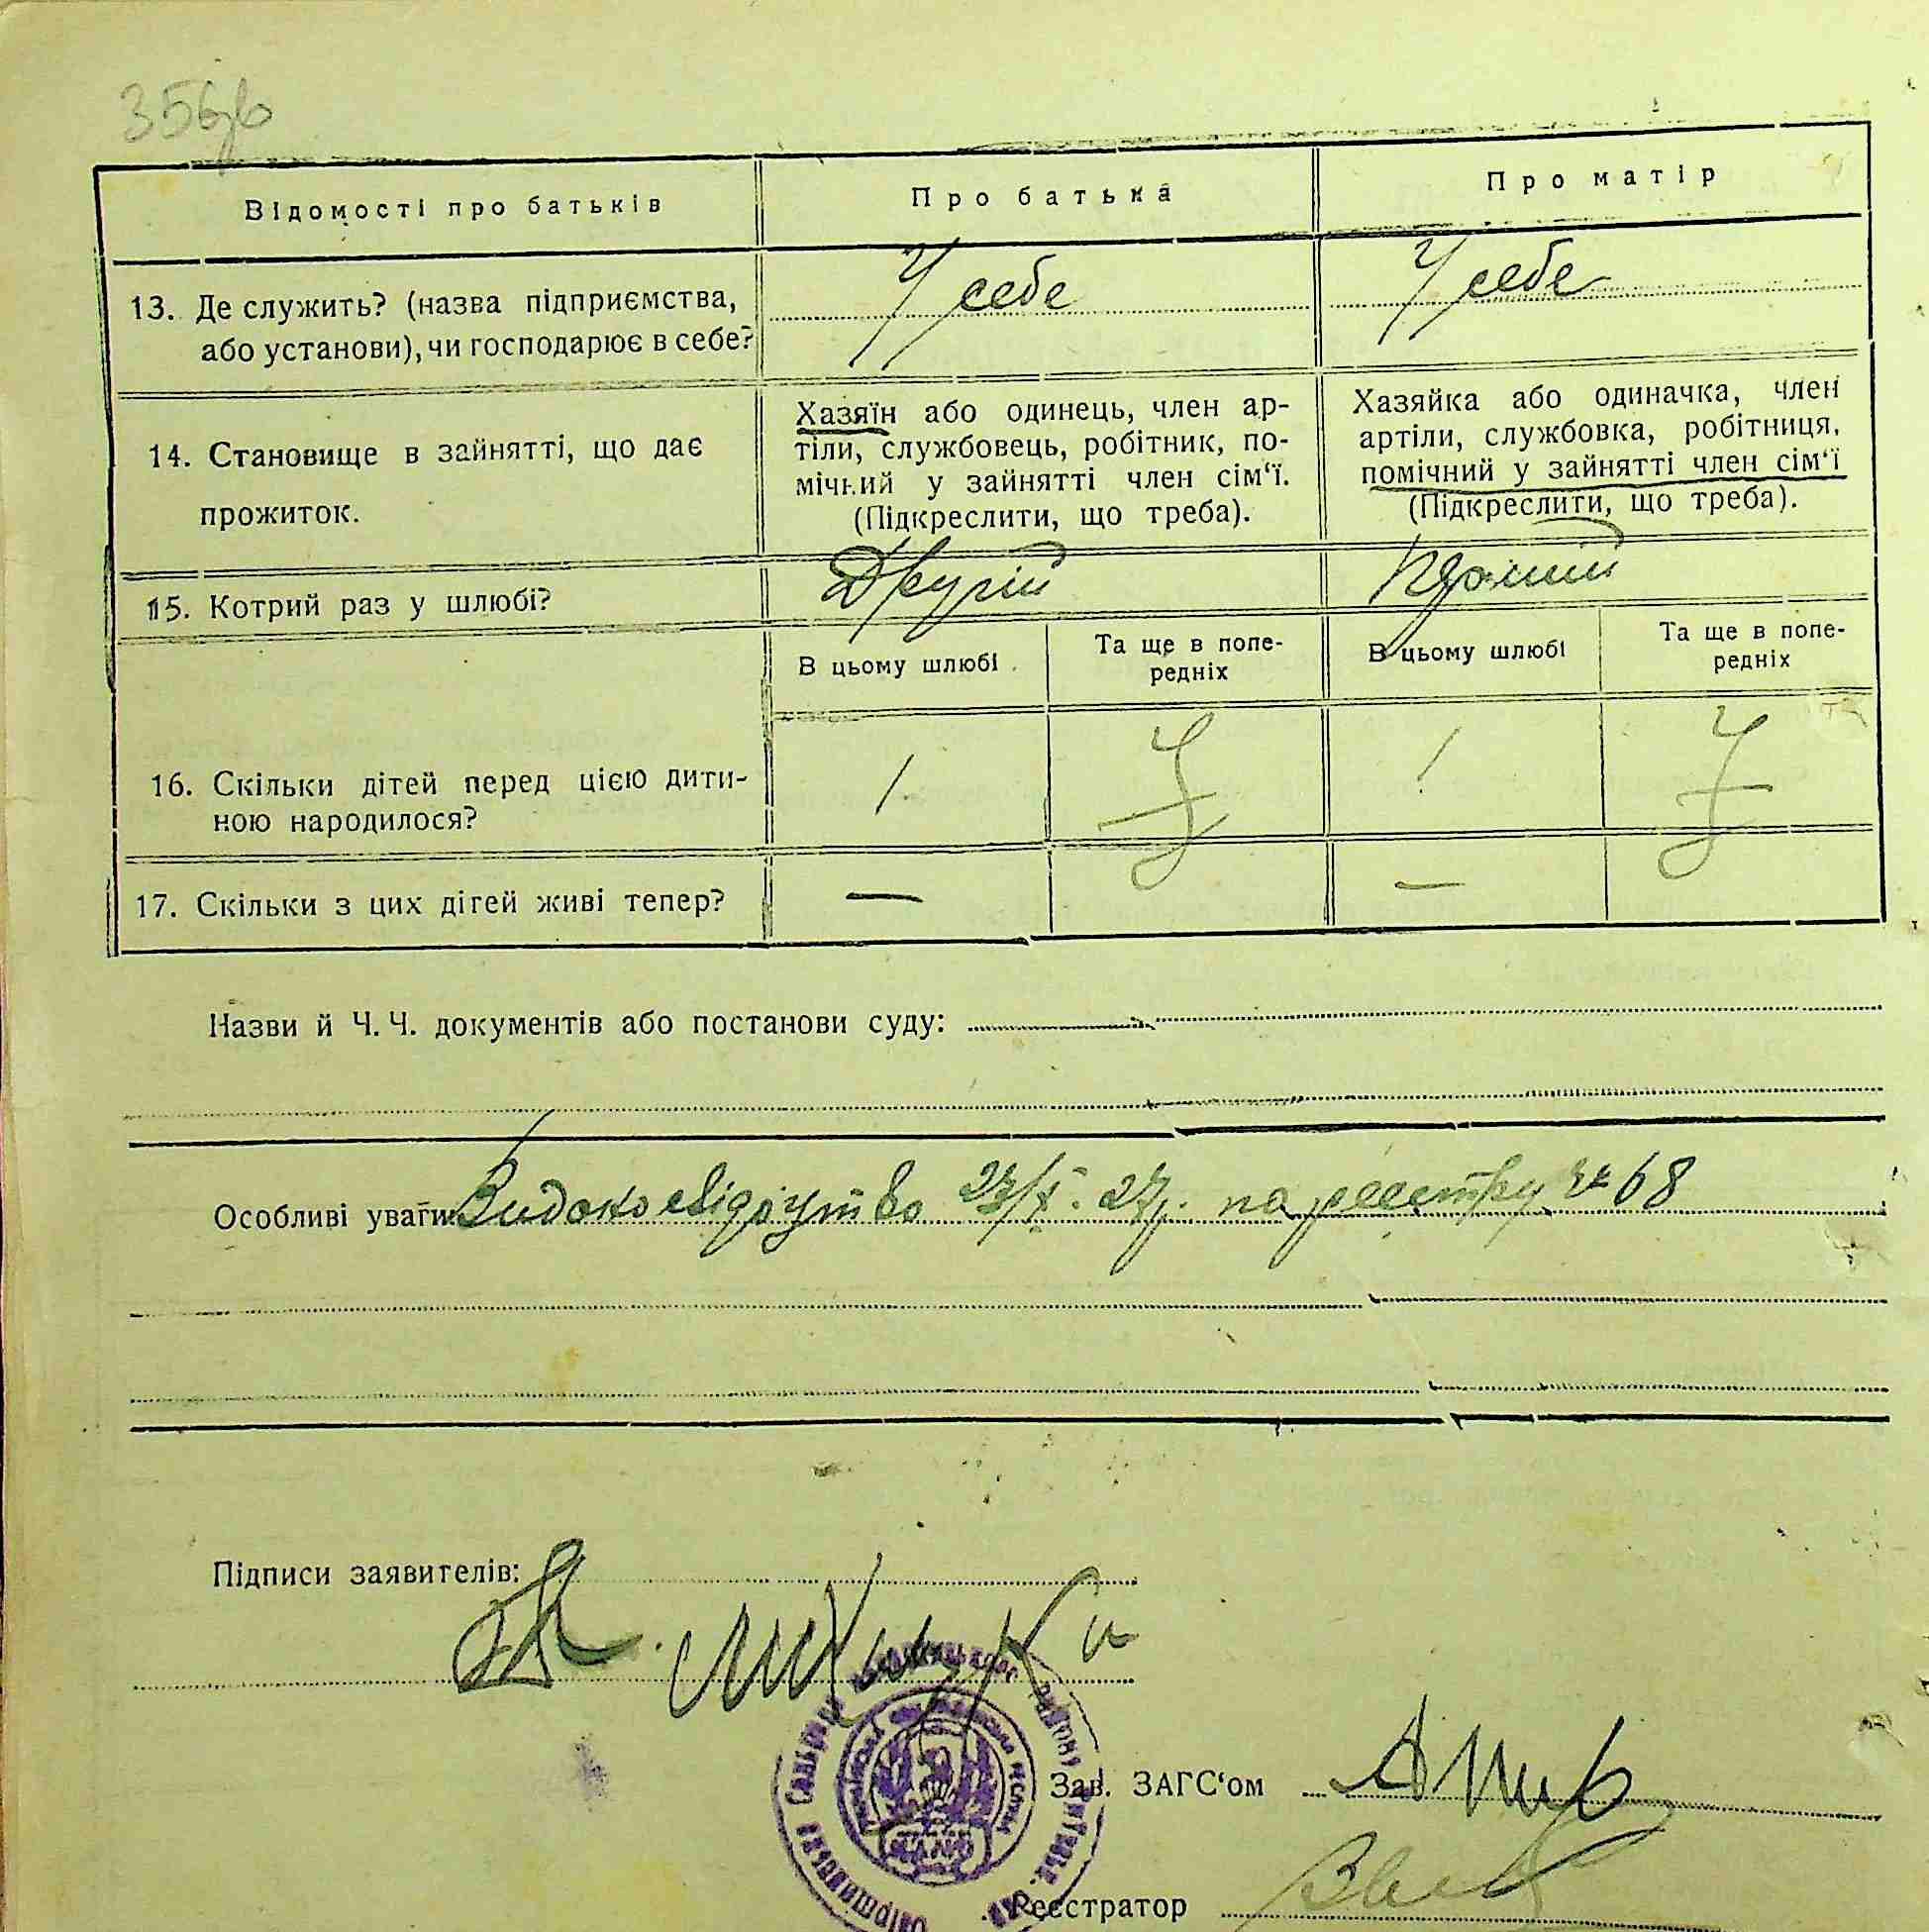 356зв
Відомості про батьків
Про батька
Про матір
13. Де служить? (назва підприємства,
або установи), чи господарює в себе?
У себе
У себе
14. Становище в зайнятті, що дає
прожиток.
Хазяїн або одинець, член ар-
тіли, службовець, робітник, по-
мічний у зайнятті член сім‘ї.
(Підкреслити, що треба).
Хазяйка або одиначка, член
артіли, службовка, робітниця,
помічний у зайнятті член сім‘ї
(Підкреслити, що треба).
15. Котрий раз у шлюбі?
Другій
В цьому шлюбі
Та ще в попе-
редніх
В цьому шлюбі
Та ще в попе-
редніх
16. Скільки дітей перед цією дити-
ною народилося?
1
1
17. Скільки з цих дітей живі тепер?
—
—
Назви й Ч. Ч. документів або постанови суду:
Особливі уваги: Видано свідоцтво 27/X. 27р. по реестру за 68
Підписи заявителів:
Зав. ЗАГС‘ом
Реєстратор